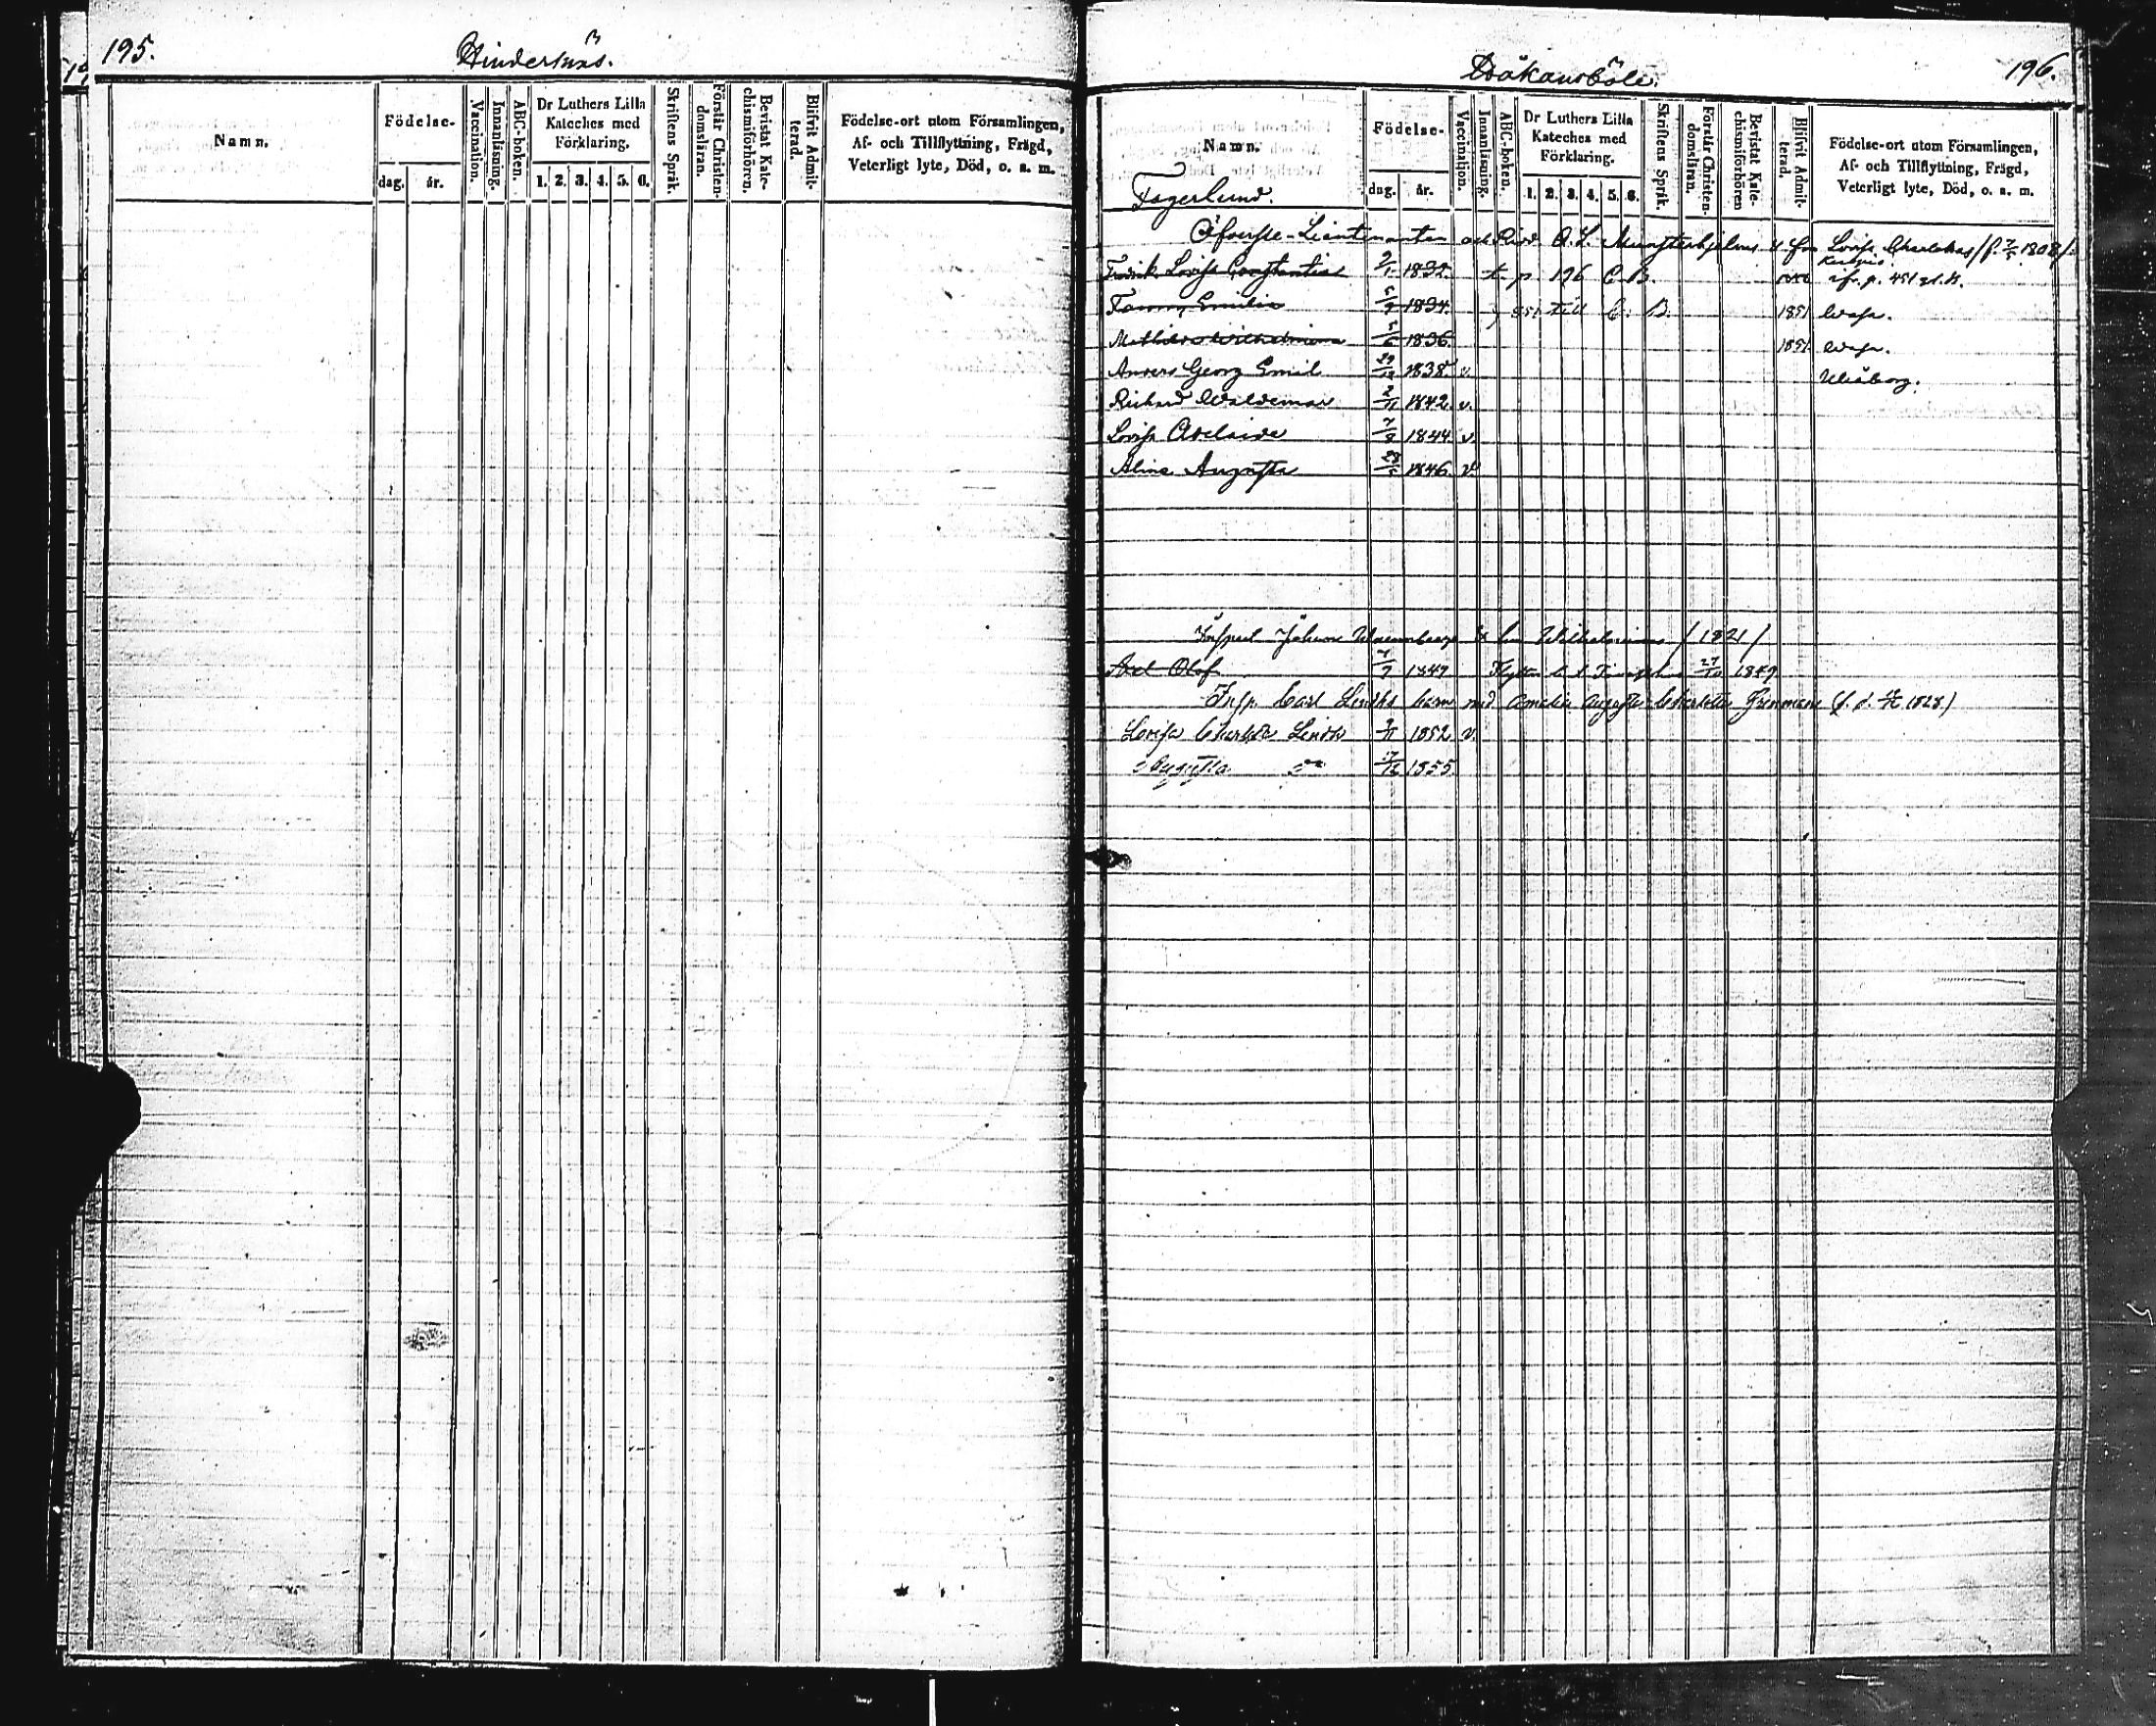 195.
Hindersnäs.
Namn.
Födelse-
dag. år.
Vaccination.
Innanläsning.
ABC-boken.
Dr Luthers Lilla
Kateches med
Förklaring.
1. 2. 3. 4. 5. 6.
Skriftens Språk.
Förstår Christen-
domsläran.
Bevistat Kate-
chismiförhören.
Blifvit Admit-
terad.
Födelse-ort utom Församlingen,
Af- och Tillflyttning, Frägd,
Veterligt lyte, Död, o. s. m.
196.
Håkansböle.
Namn.
Fagerlund.
Födelse-
dag. år.
Vaccination.
Innanläsning.
ABC-boken.
Dr Luthers Lilla
Kateches med
Förklaring.
1. 2. 3. 4. 5. 6.
Skriftens Språk.
Förstår Christen-
domsläran.
Bevistat Kate-
chismiförhören
Blifvit Admit-
terad.
Födelse-ort utom Församlingen,
Af- och Tillflyttning, Frägd,
Veterligt lyte, Död, o. s. m.
Öfverste-Lieutenanten och Ridd. A. L. Munsterhjelm Lovisa 1808
Fredrika Lovisa Constantia 1832. t. p 196 C. B.
Fanny Emilia 1834. till C. B. 1851 Wasa.
Mathilda Wilhelmina 1836. 1851 Wasa.
Anders Georg Emil 29/12 1838. v. Uleåborg.
Richard Waldemar 2/11 1842. v.
Lovisa Adelaide 7/8 1844 v.
Alina Augusta 28/5 1846. v
Johan Wilhelmina / 1821 /
Axel Olof 1847 27/10 1849
Insp. Carl Lindhs barn med Amalia Augusta Charlotta 1828.)
Lovisa Charlotta Lindh 1852 v.
Augusta do 1855.